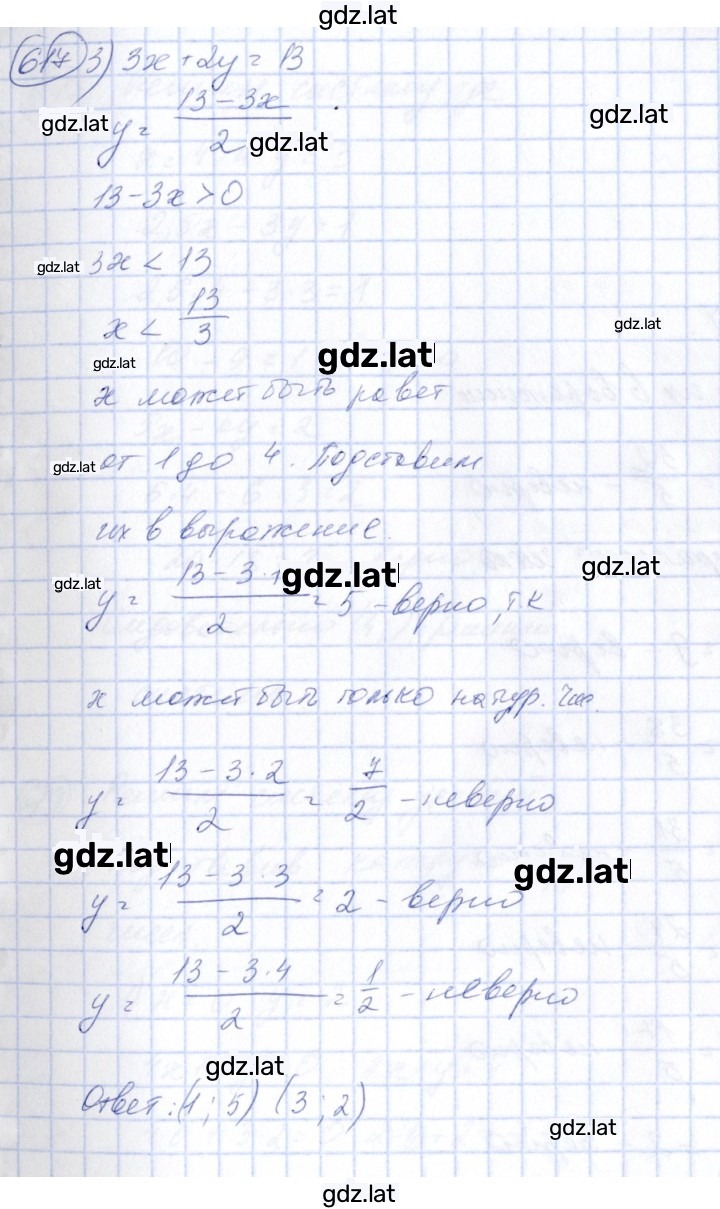 gdz.lat
617 3) 3x + 2y = 13
y = (13 - 3x)/2
gdz.lat gdz.lat gdz.lat
13 - 3x > 0
gdz.lat 3x < 13
x < 13/3
gdz.lat
gdz.lat gdz.lat
x может быть равет
gdz.lat от 1 до 4. Подставим
их в выражение.
gdz.lat gdz.lat gdz.lat
y = (13 - 3·1)/2 = 5 - верно, т к
x может быть только натур. чис.
y = (13 - 3·2)/2 = 7/2 - неверно
gdz.lat gdz.lat
y = (13 - 3·3)/2 = 2 - верно
y = (13 - 3·4)/2 = 1/2 - неверно
gdz.lat
Ответ: (1; 5) (3; 2)
gdz.lat
gdz.lat